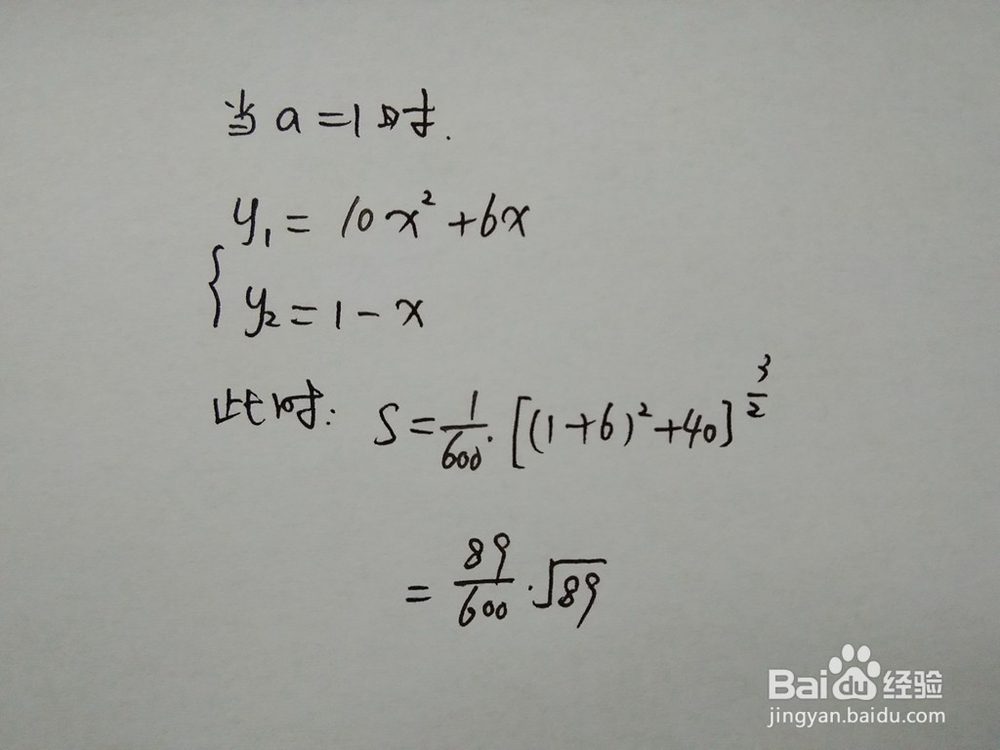 当 a = 1 时.
y₁ = 10x² + 6x
{ y₂ = 1 - x
此时: S = 1/600 · [(1+6)² + 40]^(3/2)
= 89/600 · √89
Baidu 经验
jingyan.baidu.com